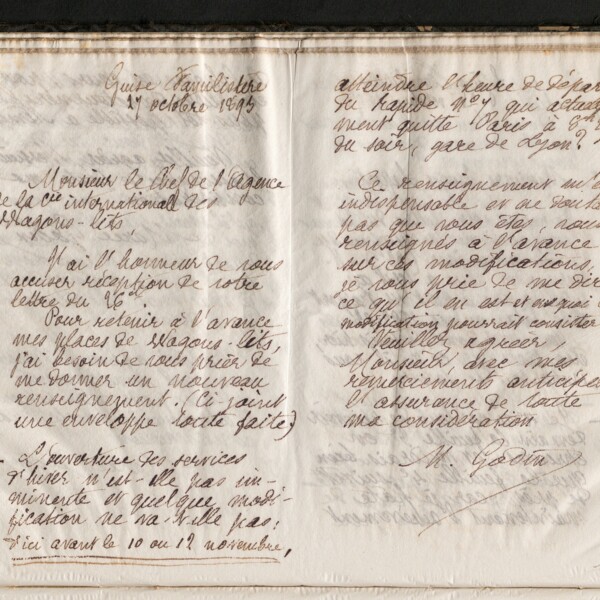 Guise Familistère
27 octobre 1893
Monsieur le Chef de l'Agence
de la Cie internationale des
Wagons-lits,
J'ai l'honneur de vous
accuser réception de votre
lettre du 26 ct.
Pour retenir à l'avance
mes places de Wagons-lits,
j'ai besoin de vous prier de
me donner un nouveau
renseignement. (Ci-joint
une enveloppe toute faite)
L'ouverture des services
d'hiver n'est-elle pas im-
minente et quelque modi-
fication ne va-t-elle pas:
d'ici avant le 10 ou 12 novembre,
atteindre l'heure de départ
du rapide No 7 qui actuelle-
ment quitte Paris à
du soir, gare de Lyon?
Ce renseignement m'est
indispensable et ne doutant
pas que vous êtes, vous
renseignés à l'avance
sur ces modifications,
je vous prie de me dire
ce qu'il en est et en quoi la
modification pourrait consister
Veuillez agréer,
Monsieur, avec mes
remerciements anticipés
l'assurance de toute
ma considération
M. Godin